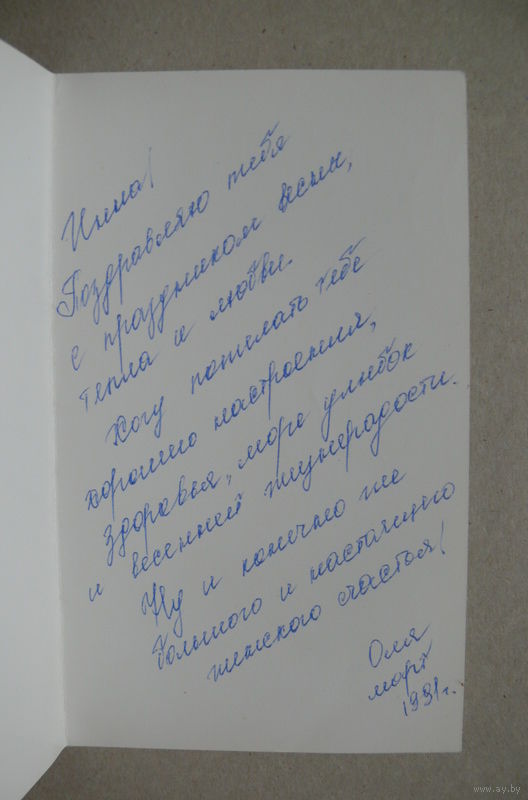 Инна!
Поздравляю тебя
с праздником весны,
тепла и любви.
Хочу пожелать тебе
хорошего настроения,
здоровья, море улыбок
и весенней жизнерадости.
Ну и конечно же
большого и настоящего
женского счастья!
Оля
март
1991г.
www.ay.by